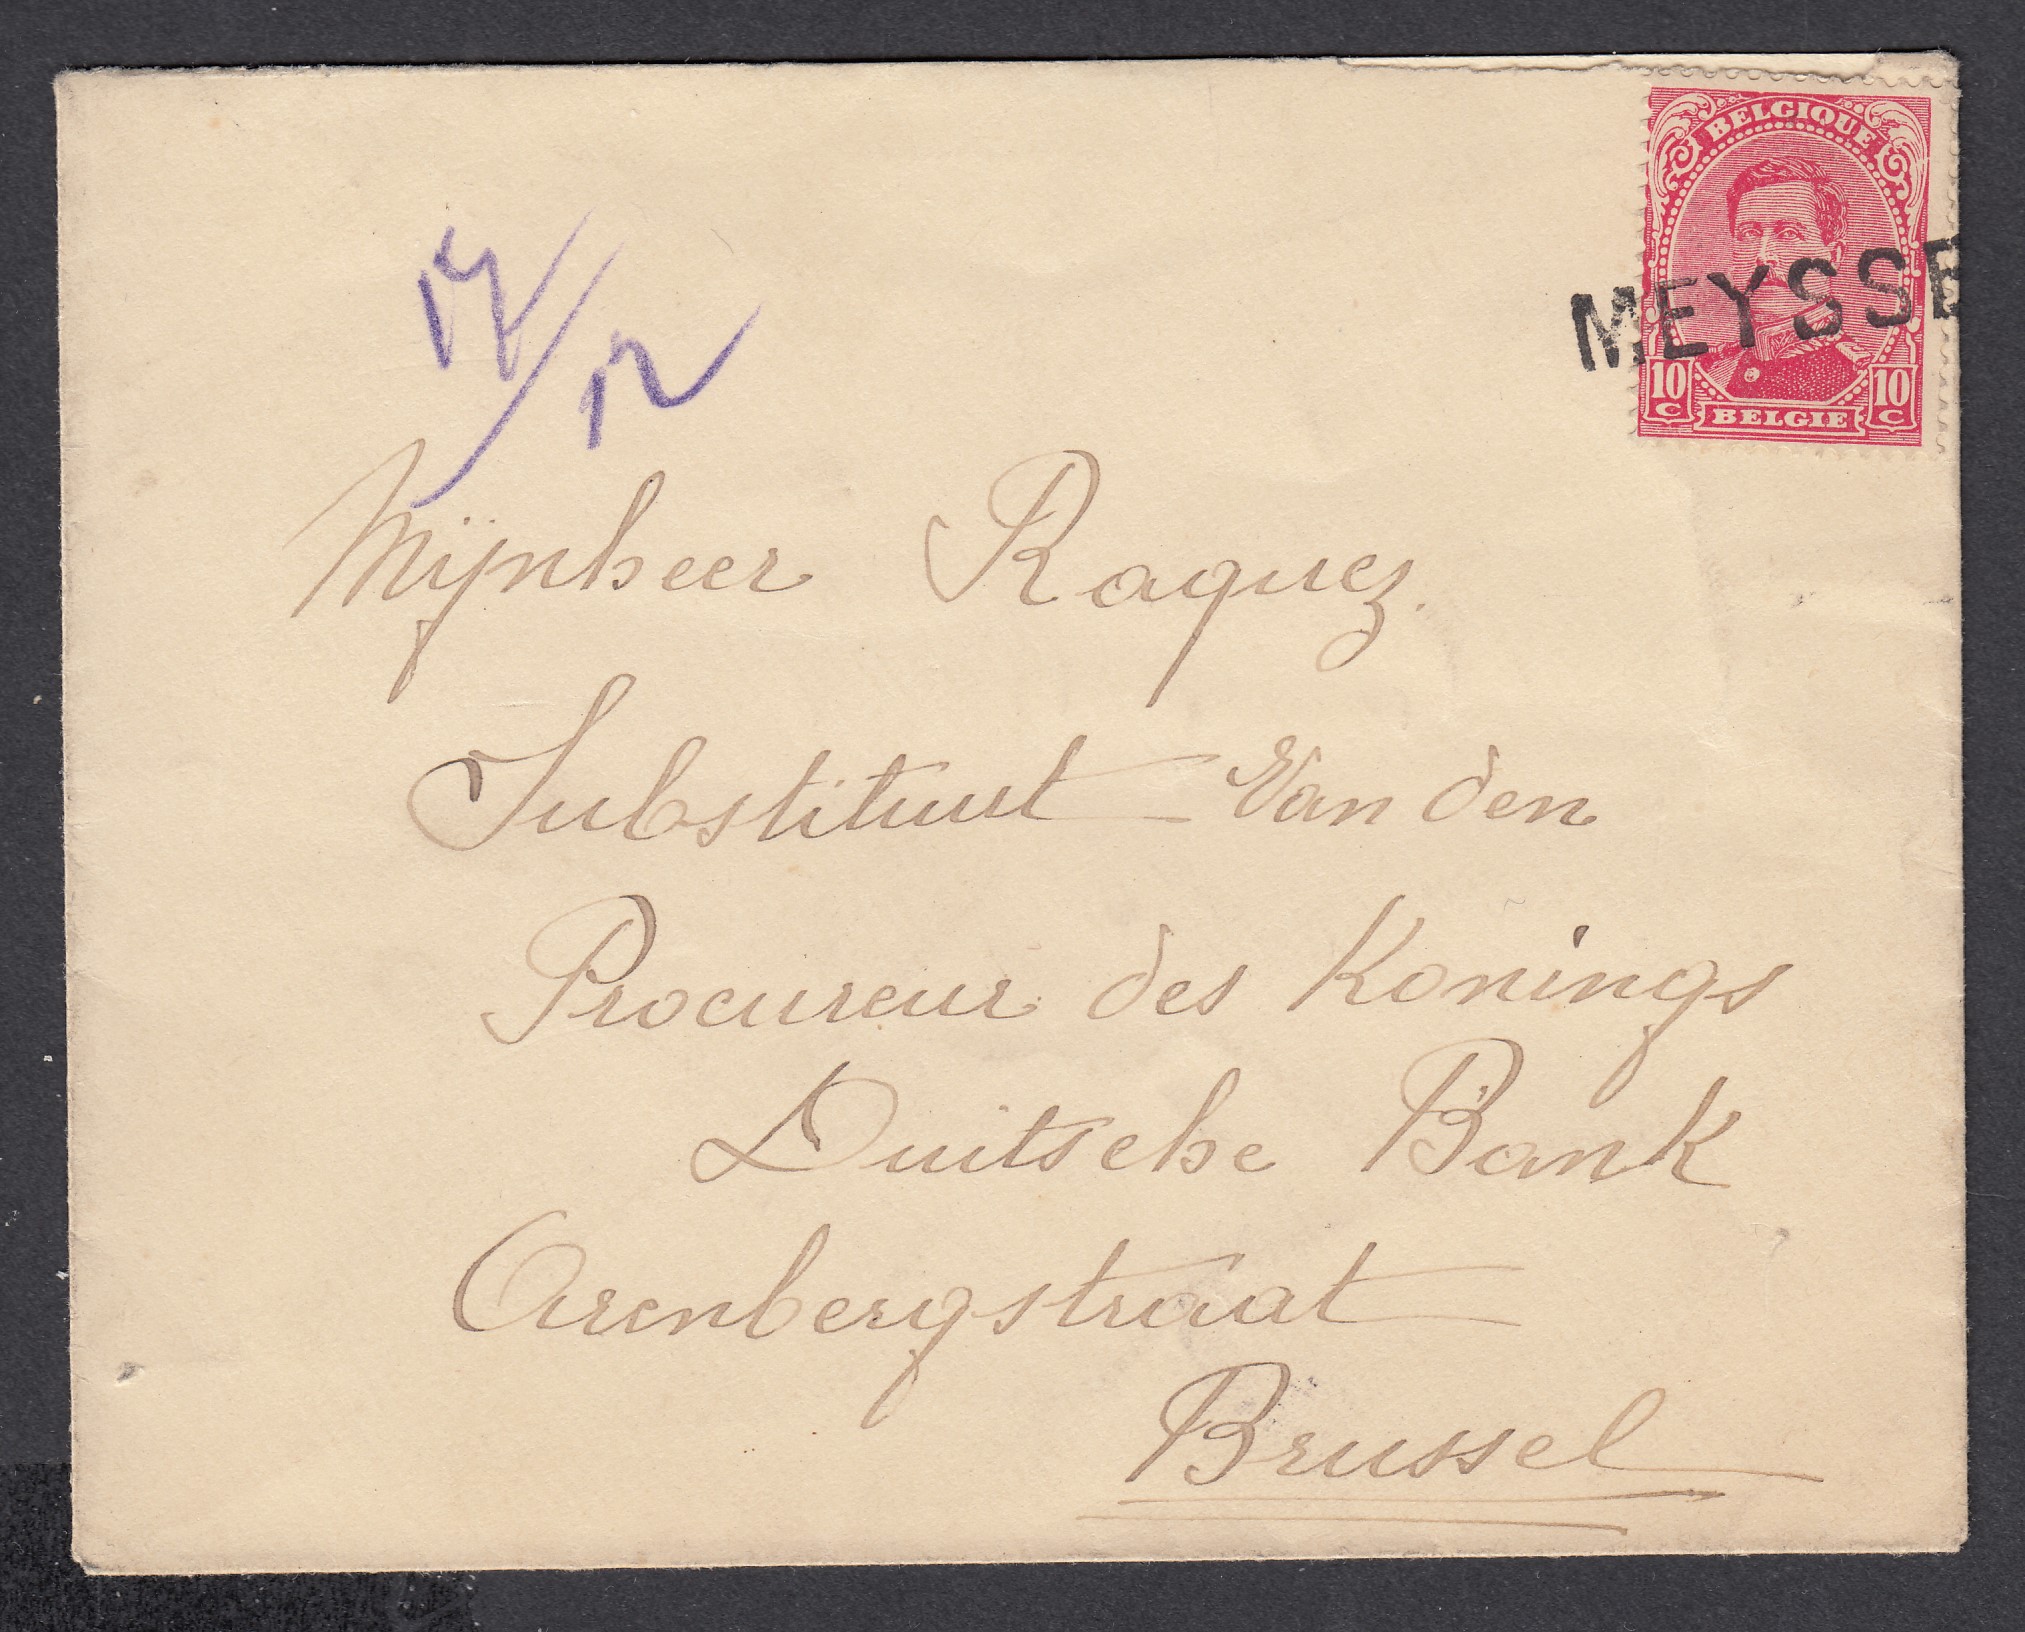 BELGIQUE
MEYSSE
10 C 10 C
BELGIE
17/12
Mijnheer Raquez.
Substituut Van den
Procureur des Konings
Duitsche Bank
Arenbergstraat
Brussel